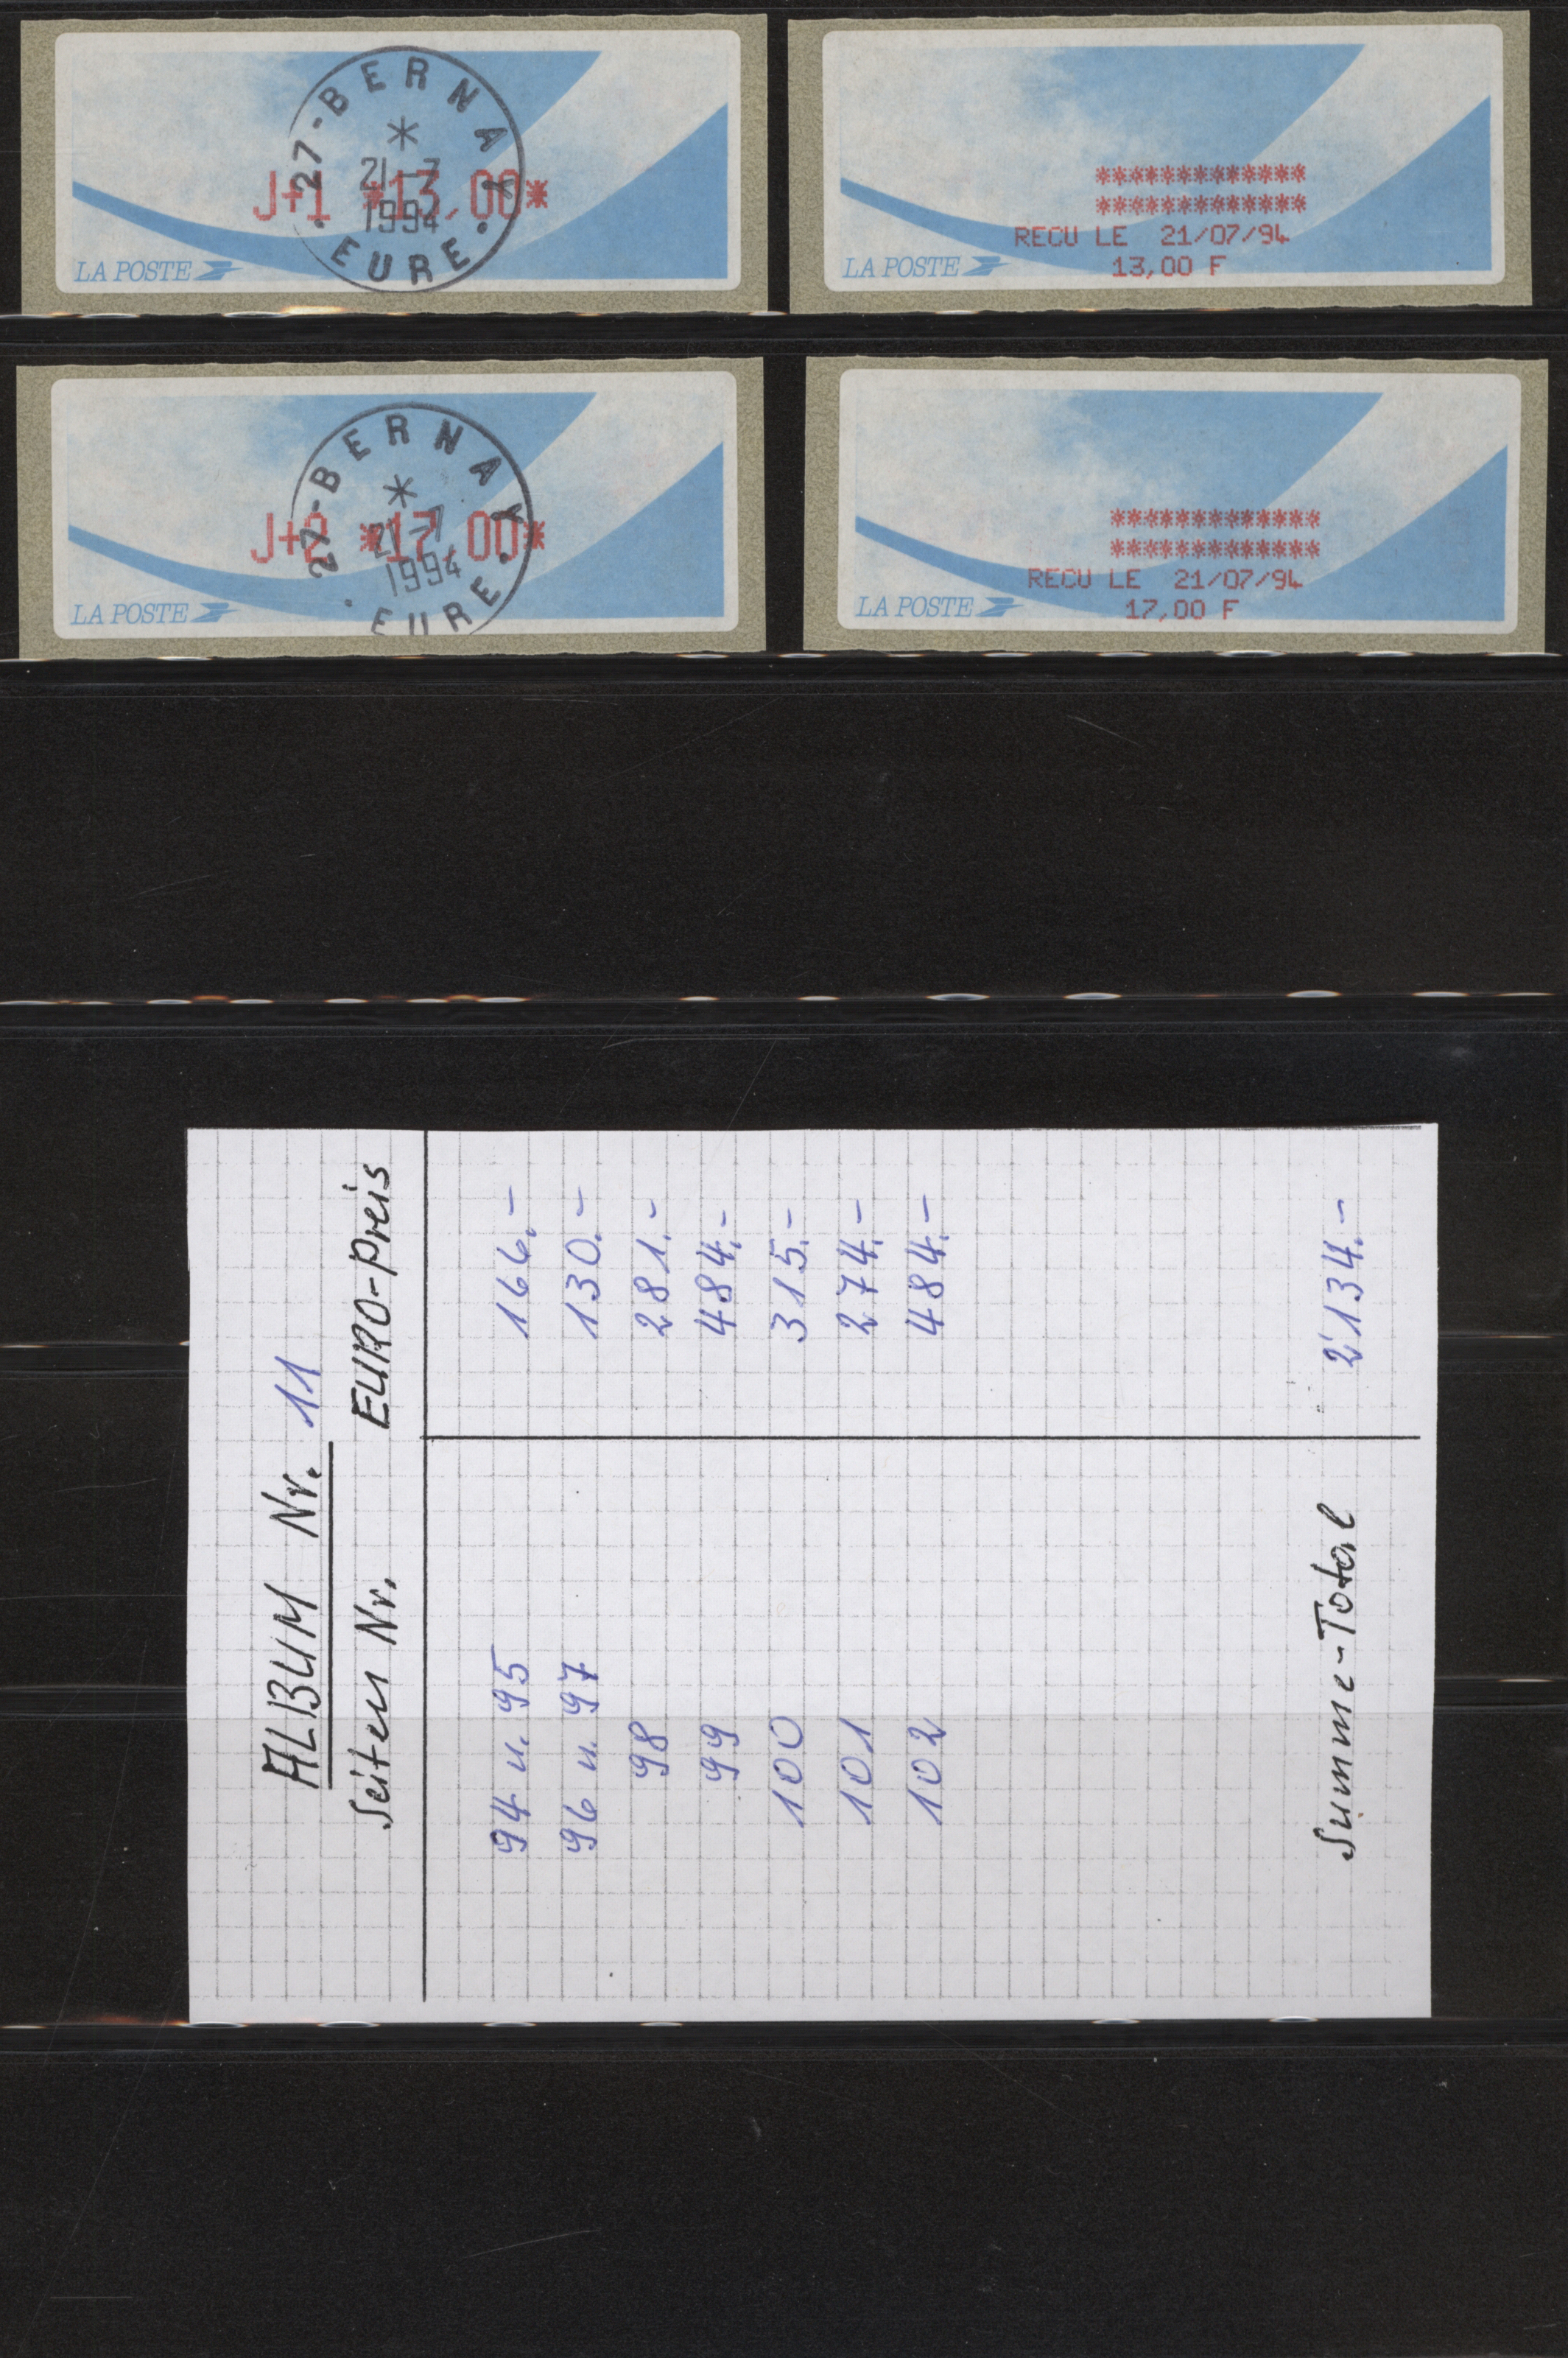 27-BERNAY
*
21-7
1994
J+1 *13,00*
EURE
LA POSTE
*************
*************
RECU LE 21/07/94
13,00 F
LA POSTE
27-BERNAY
*
21-7
1994
J+2 *17,00*
EURE
LA POSTE
*************
*************
RECU LE 21/07/94
17,00 F
LA POSTE
ALBUM Nr. 11
Seiten Nr. EURO-Preis
94 u. 95 166.-
96 u. 97 130.-
98 281.-
99 484.-
100 315.-
101 274.-
102 484.-
Summe-Total 2'134.-